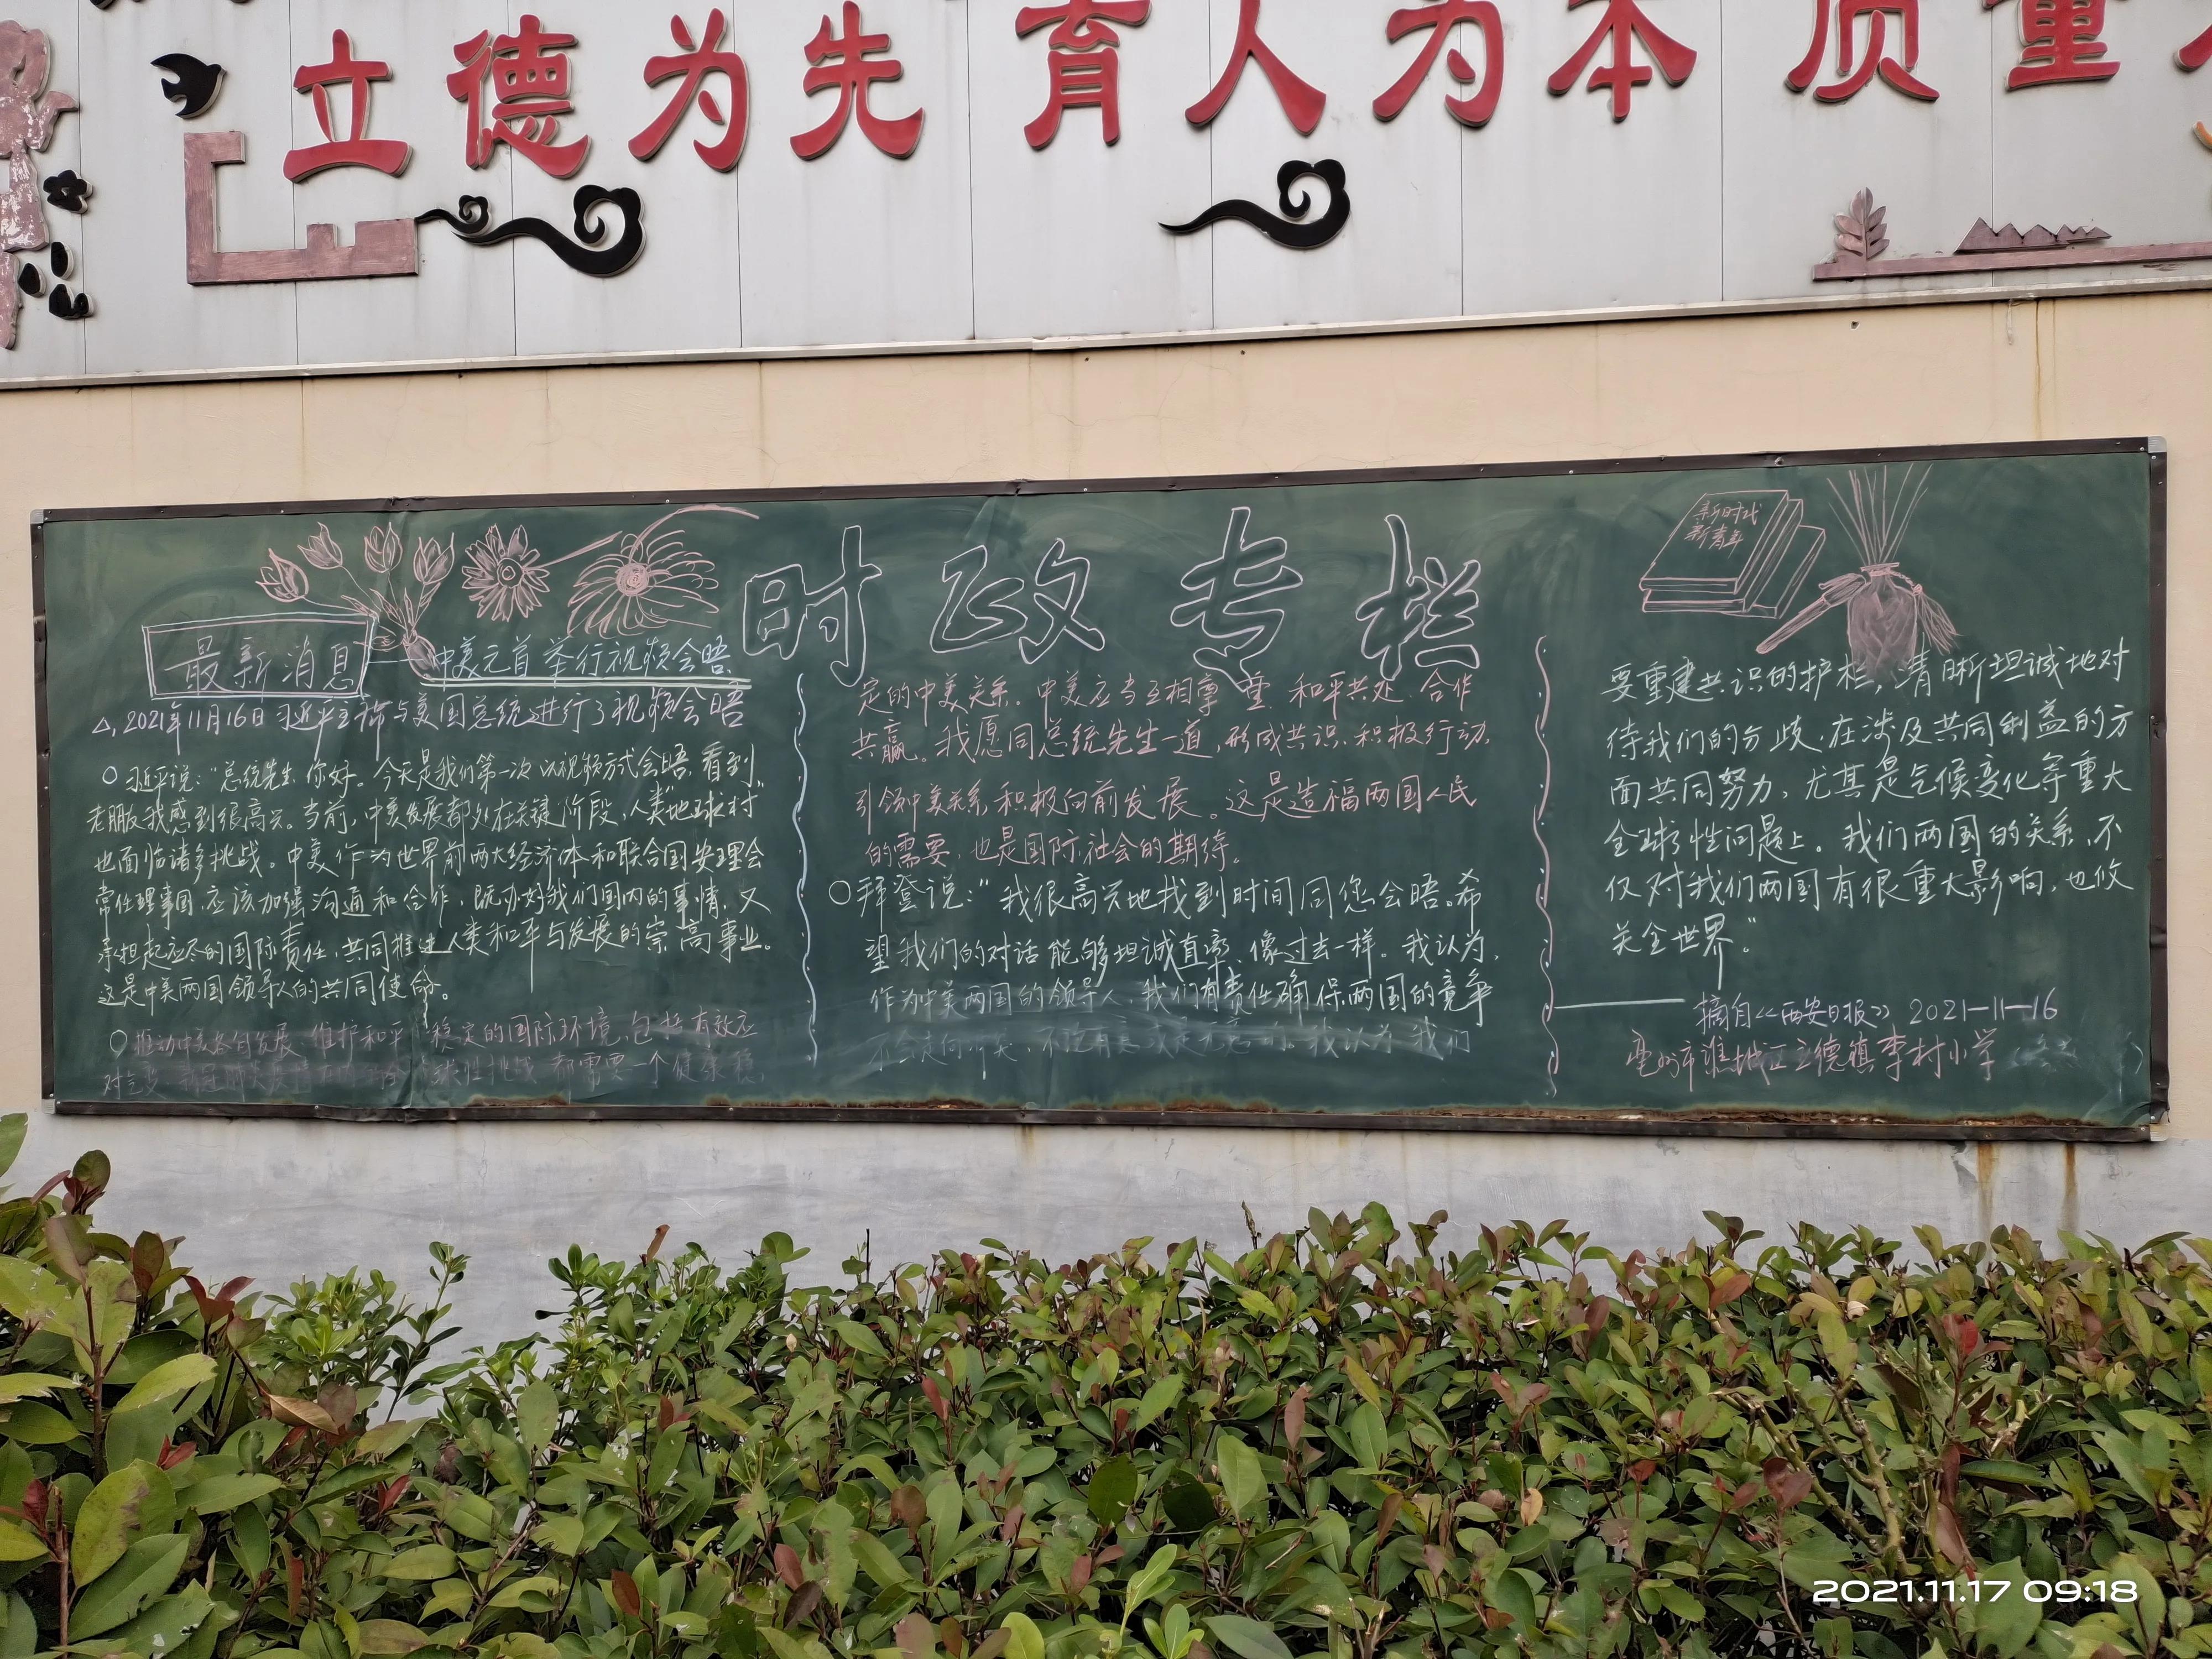 立德为先 育人为本 质量
时政专栏
新时代
新青年
最新消息
中美元首举行视频会晤
△,2021年11月16日习近平主席与美国总统进行了视频会晤
○习近平说:“总统先生,你好。今天是我们第一次以视频方式会晤,看到
老朋友我感到很高兴。当前,中美发展都处在关键阶段,人类“地球村”
也面临诸多挑战。中美作为世界前两大经济体和联合国安理会
常任理事国,应该加强沟通和合作,既办好我们国内的事情,又
承担起应尽的国际责任,共同推进人类和平与发展的崇高事业。
这是中美两国领导人的共同使命。
○推动中美各自发展,维护和平 稳定的国际环境,包括有效应
对气 全球性挑战 都需要一个健康稳
定的中美关系。中美应当互相尊重、和平共处、合作
共赢。我愿同总统先生一道,形成共识、积极行动,
引领中美关系积极向前发展。这是造福两国人民
的需要,也是国际社会的期待。
○拜登说:“我很高兴地找到时间同您会晤。希
望我们的对话能够坦诚直率,像过去一样。我认为,
作为中美两国的领导人,我们有责任确保两国的竞争
不会走向冲突,不论有意或是无意的。我认为,我们
要重建共识的护栏,清晰坦诚地对
待我们的分歧,在涉及共同利益的方
面共同努力,尤其是气候变化等重大
全球性问题上。我们两国的关系,不
仅对我们两国有很重大影响,也攸
关全世界。”
——摘自《西安日报》2021—11—16
亳州市谯城区立德镇李村小学
2021.11.17 09:18